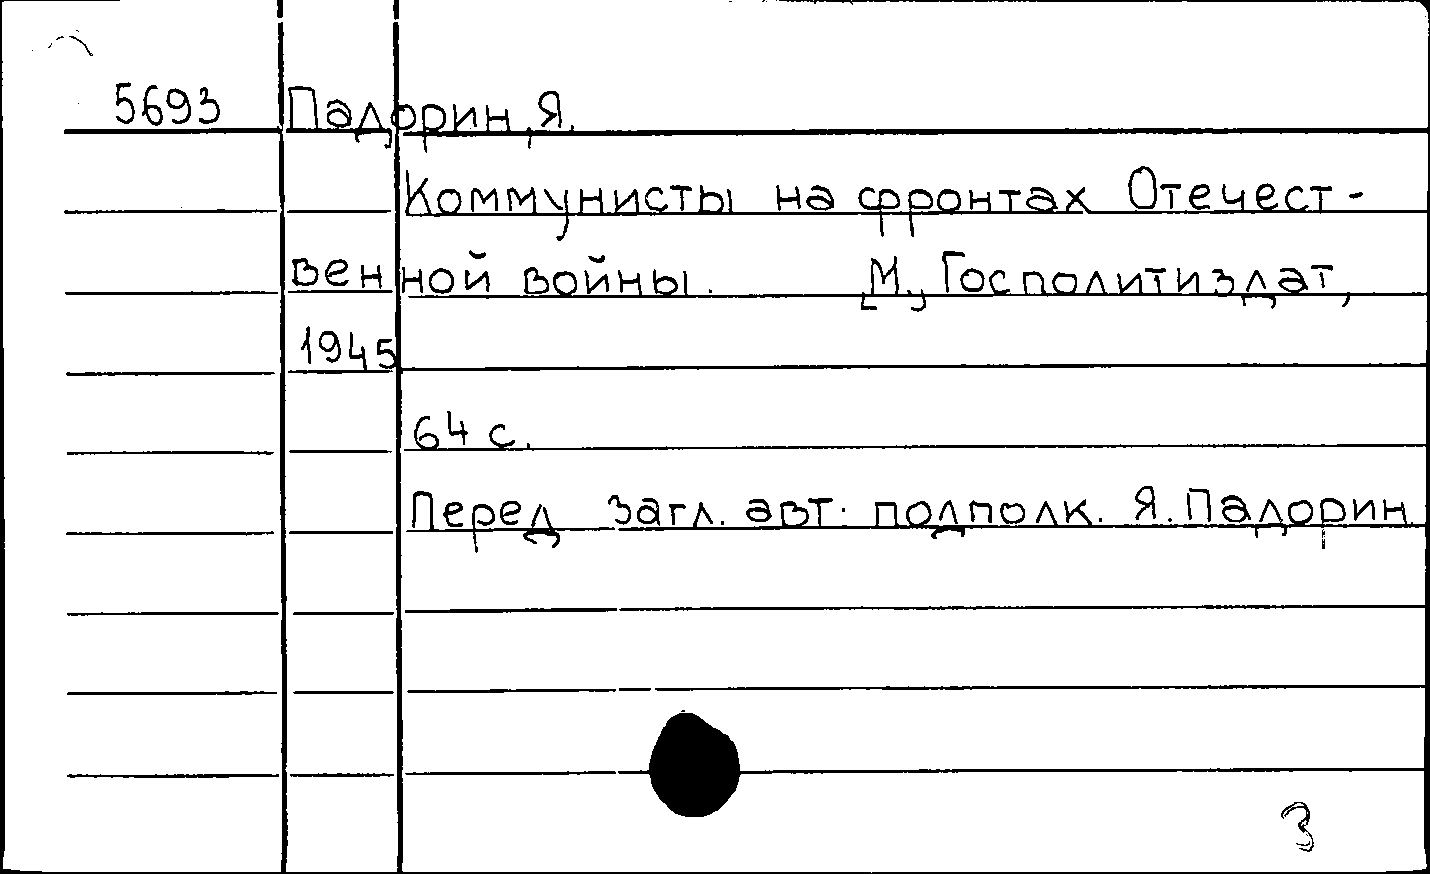 5693 Падорин, Я.
Коммунисты на фронтах Отечест-
венной войны. М., Госполитиздат,
1945
64 с.
Перед загл. авт. подполк. Я. Падорин.
3